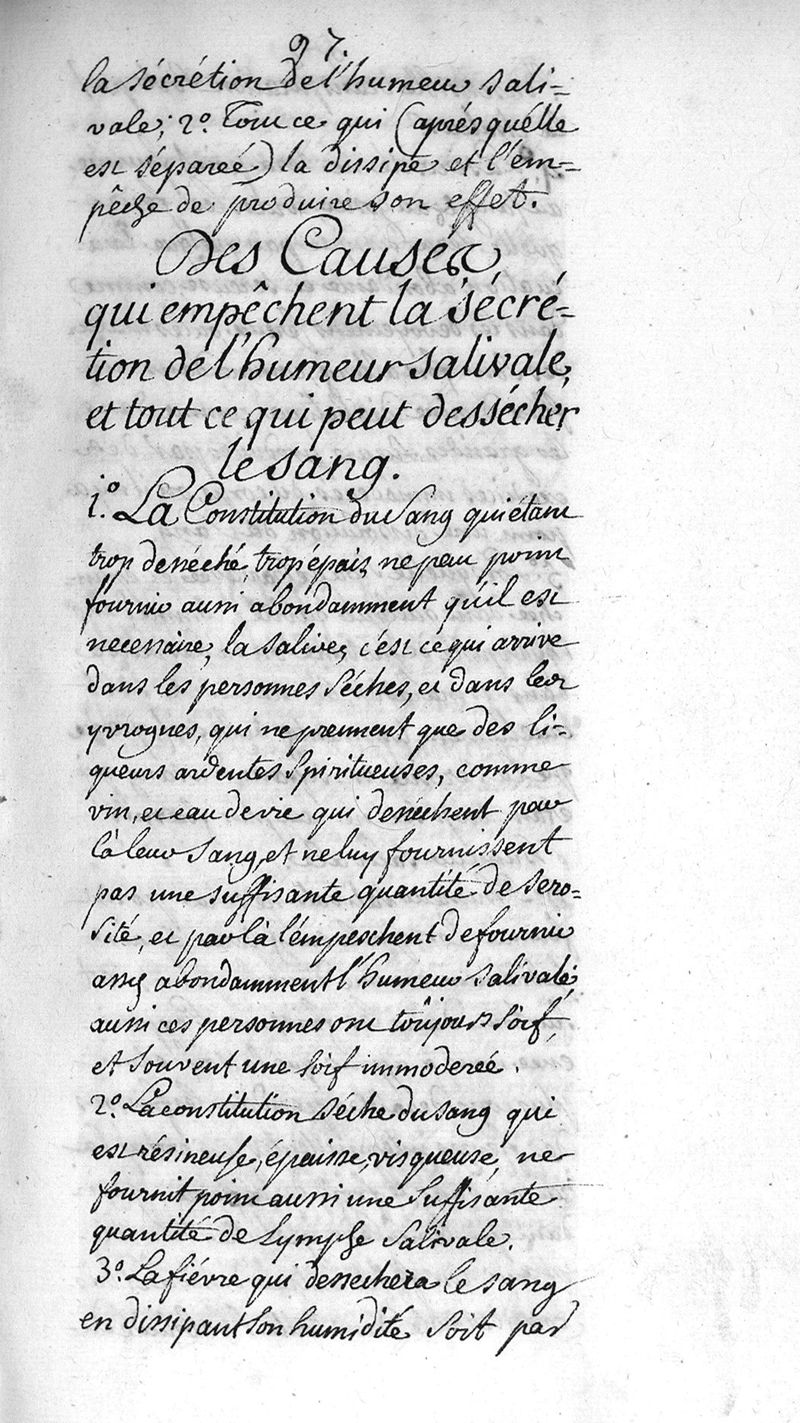 97.
la sécrétion de l'humeur sali=
vale; 2º. Tout ce qui (aprés qu'élle
est sépareé) la dissipe et l'em=
pêche de produire son effet.
Des Causes,
qui empêchent la sécré=
tion de l'humeur salivale,
et tout ce qui peut dessécher
le sang.
1.º La Constitution du sang qui étant
trop desséché, trop épais, ne peut point
fournir aussi abondamment qu'il est
necessaire, la salive; c'est ce qui arrive
dans les personnes séches, et dans les
yvrognes, qui ne prennent que des li=
queurs ardentes spiritueuses, comme
vin, et eau de vie qui desséchent par
là leur sang, et ne luy fournissent
pas une suffisante quantité de sero=
sité, et par là l'émpeschent de fournir
assez abondamment l'humeur salivale;
aussi ces personnes ont toûjours soif,
et souvent une soif immodereé.
2.º La constitution séche du sang qui
est résineuse, épaisse, visqueuse, ne
fournit point aussi une suffisante
quantité de lymphe salivale.
3.º La fiévre qui dessechera le sang
en dissipant son humidité soit par